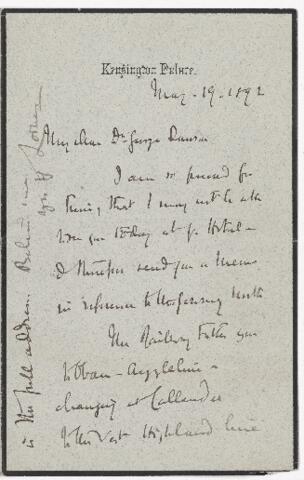 Kensington Palace.
May. 19. 1892
My dear Dr George Dawson
I am so pressed for
time, that I may not be able
to see you today at yr Hotel -
& therefore send you a memo
in reference to
The Railway takes you
to Oban - Argyllshire -
changing at Callander
to the West Highland line
is the full address. Believe me
yrs Lorne